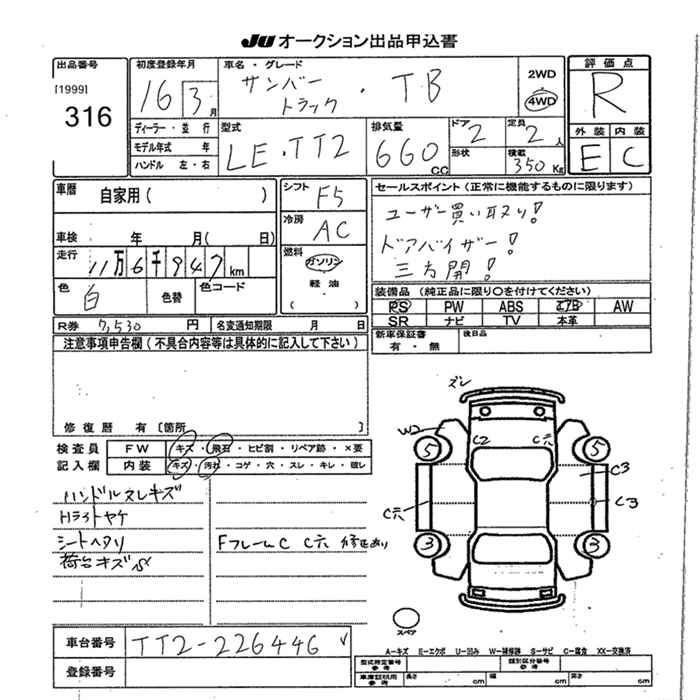 JU オークション出品申込書
出品番号
[1999]
316
初度登録年月
16 3月
車名・グレード
サンバー
トラック ・ TB
2WD
4WD
評価点
R
外装 内装
E C
ディーラー・並行
モデル年式 年
ハンドル 左・右
型式
LE・TT2
排気量
660cc
ドア 2
形状
定員 2人
積載 350Kg
車歴 自家用( )
車検 年 月( 日)
走行 11万6千947km
色 白 色替 色コード
シフト F5
冷房 AC
燃料
ガソリン
軽油
( )
セールスポイント(正常に機能するものに限ります)
ユーザー買い取り!
ドアバイザー!
三方開!
装備品 (純正品に限り○を付けてください)
PS PW ABS エアB AW
SR ナビ TV 本革
R券 7,530円 名変通知期限 月 日
新車保証書
有・無
後日品
注意事項申告欄(不具合内容等は具体的に記入して下さい)
修復歴 有〔箇所 〕
検査員 FW キズ・飛石・ヒビ割・リペア跡・×要
記入欄 内装 キズ・汚れ・コゲ・穴・スレ・キレ・破レ
ハンドルスレキズ
Hライトヤケ
シートヘタリ
荷台キズ
FフレームC C穴 修正あり
ズレ
W2
C2 C穴
5 5
C3
C穴 C3
3 3
スペア
車台番号 TT2-226446
登録番号
A-キズ E-エクボ U-凹み W-補修跡 S-サビ C-腐食 XX-交換済
型式指定番号
参考
類別区分番号
参考
車庫証明用
参考
長さ cm 幅 cm 高さ cm